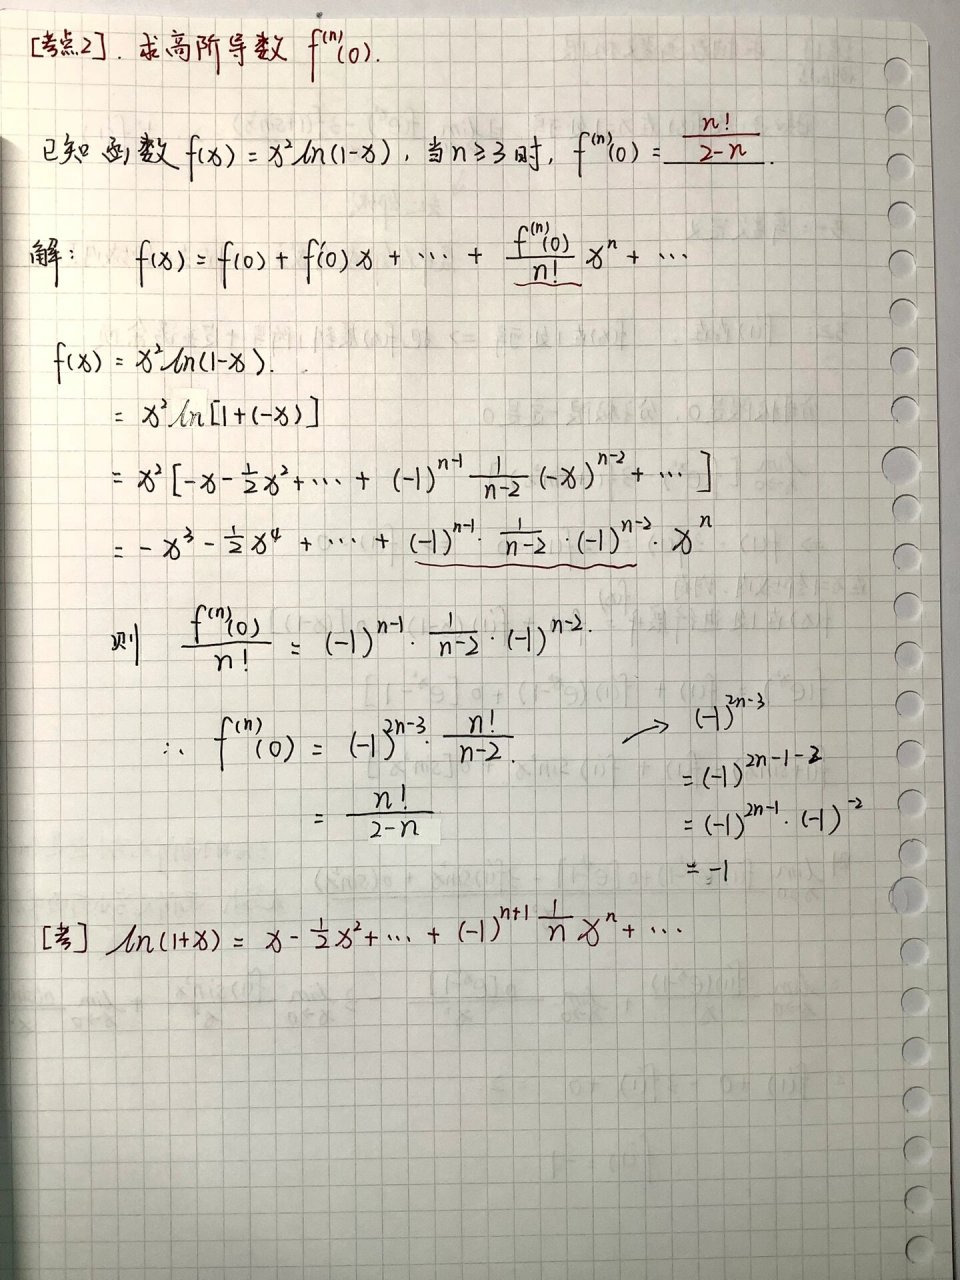 [考点2]. 求高阶导数 f⁽ⁿ⁾(0).
已知函数 f(x) = x² ln(1-x), 当 n ≥ 3 时, f⁽ⁿ⁾(0) = n!/(2-n).
解: f(x) = f(0) + f'(0)x + ⋯ + f⁽ⁿ⁾(0)/n! xⁿ + ⋯
f(x) = x² ln(1-x).
= x² ln[1+(-x)]
= x² [-x - 1/2 x² + ⋯ + (-1)ⁿ⁻¹ 1/(n-2) (-x)ⁿ⁻² + ⋯ ]
= -x³ - 1/2 x⁴ + ⋯ + (-1)ⁿ⁻¹ · 1/(n-2) · (-1)ⁿ⁻² · xⁿ
则 f⁽ⁿ⁾(0)/n! = (-1)ⁿ⁻¹ · 1/(n-2) · (-1)ⁿ⁻².
∴ f⁽ⁿ⁾(0) = (-1)²ⁿ⁻³ · n!/(n-2).
= n!/(2-n)
→ (-1)²ⁿ⁻³
= (-1)²ⁿ⁻¹⁻²
= (-1)²ⁿ⁻¹ · (-1)⁻²
= -1
[考] ln(1+x) = x - 1/2 x² + ⋯ + (-1)ⁿ⁺¹ 1/n xⁿ + ⋯